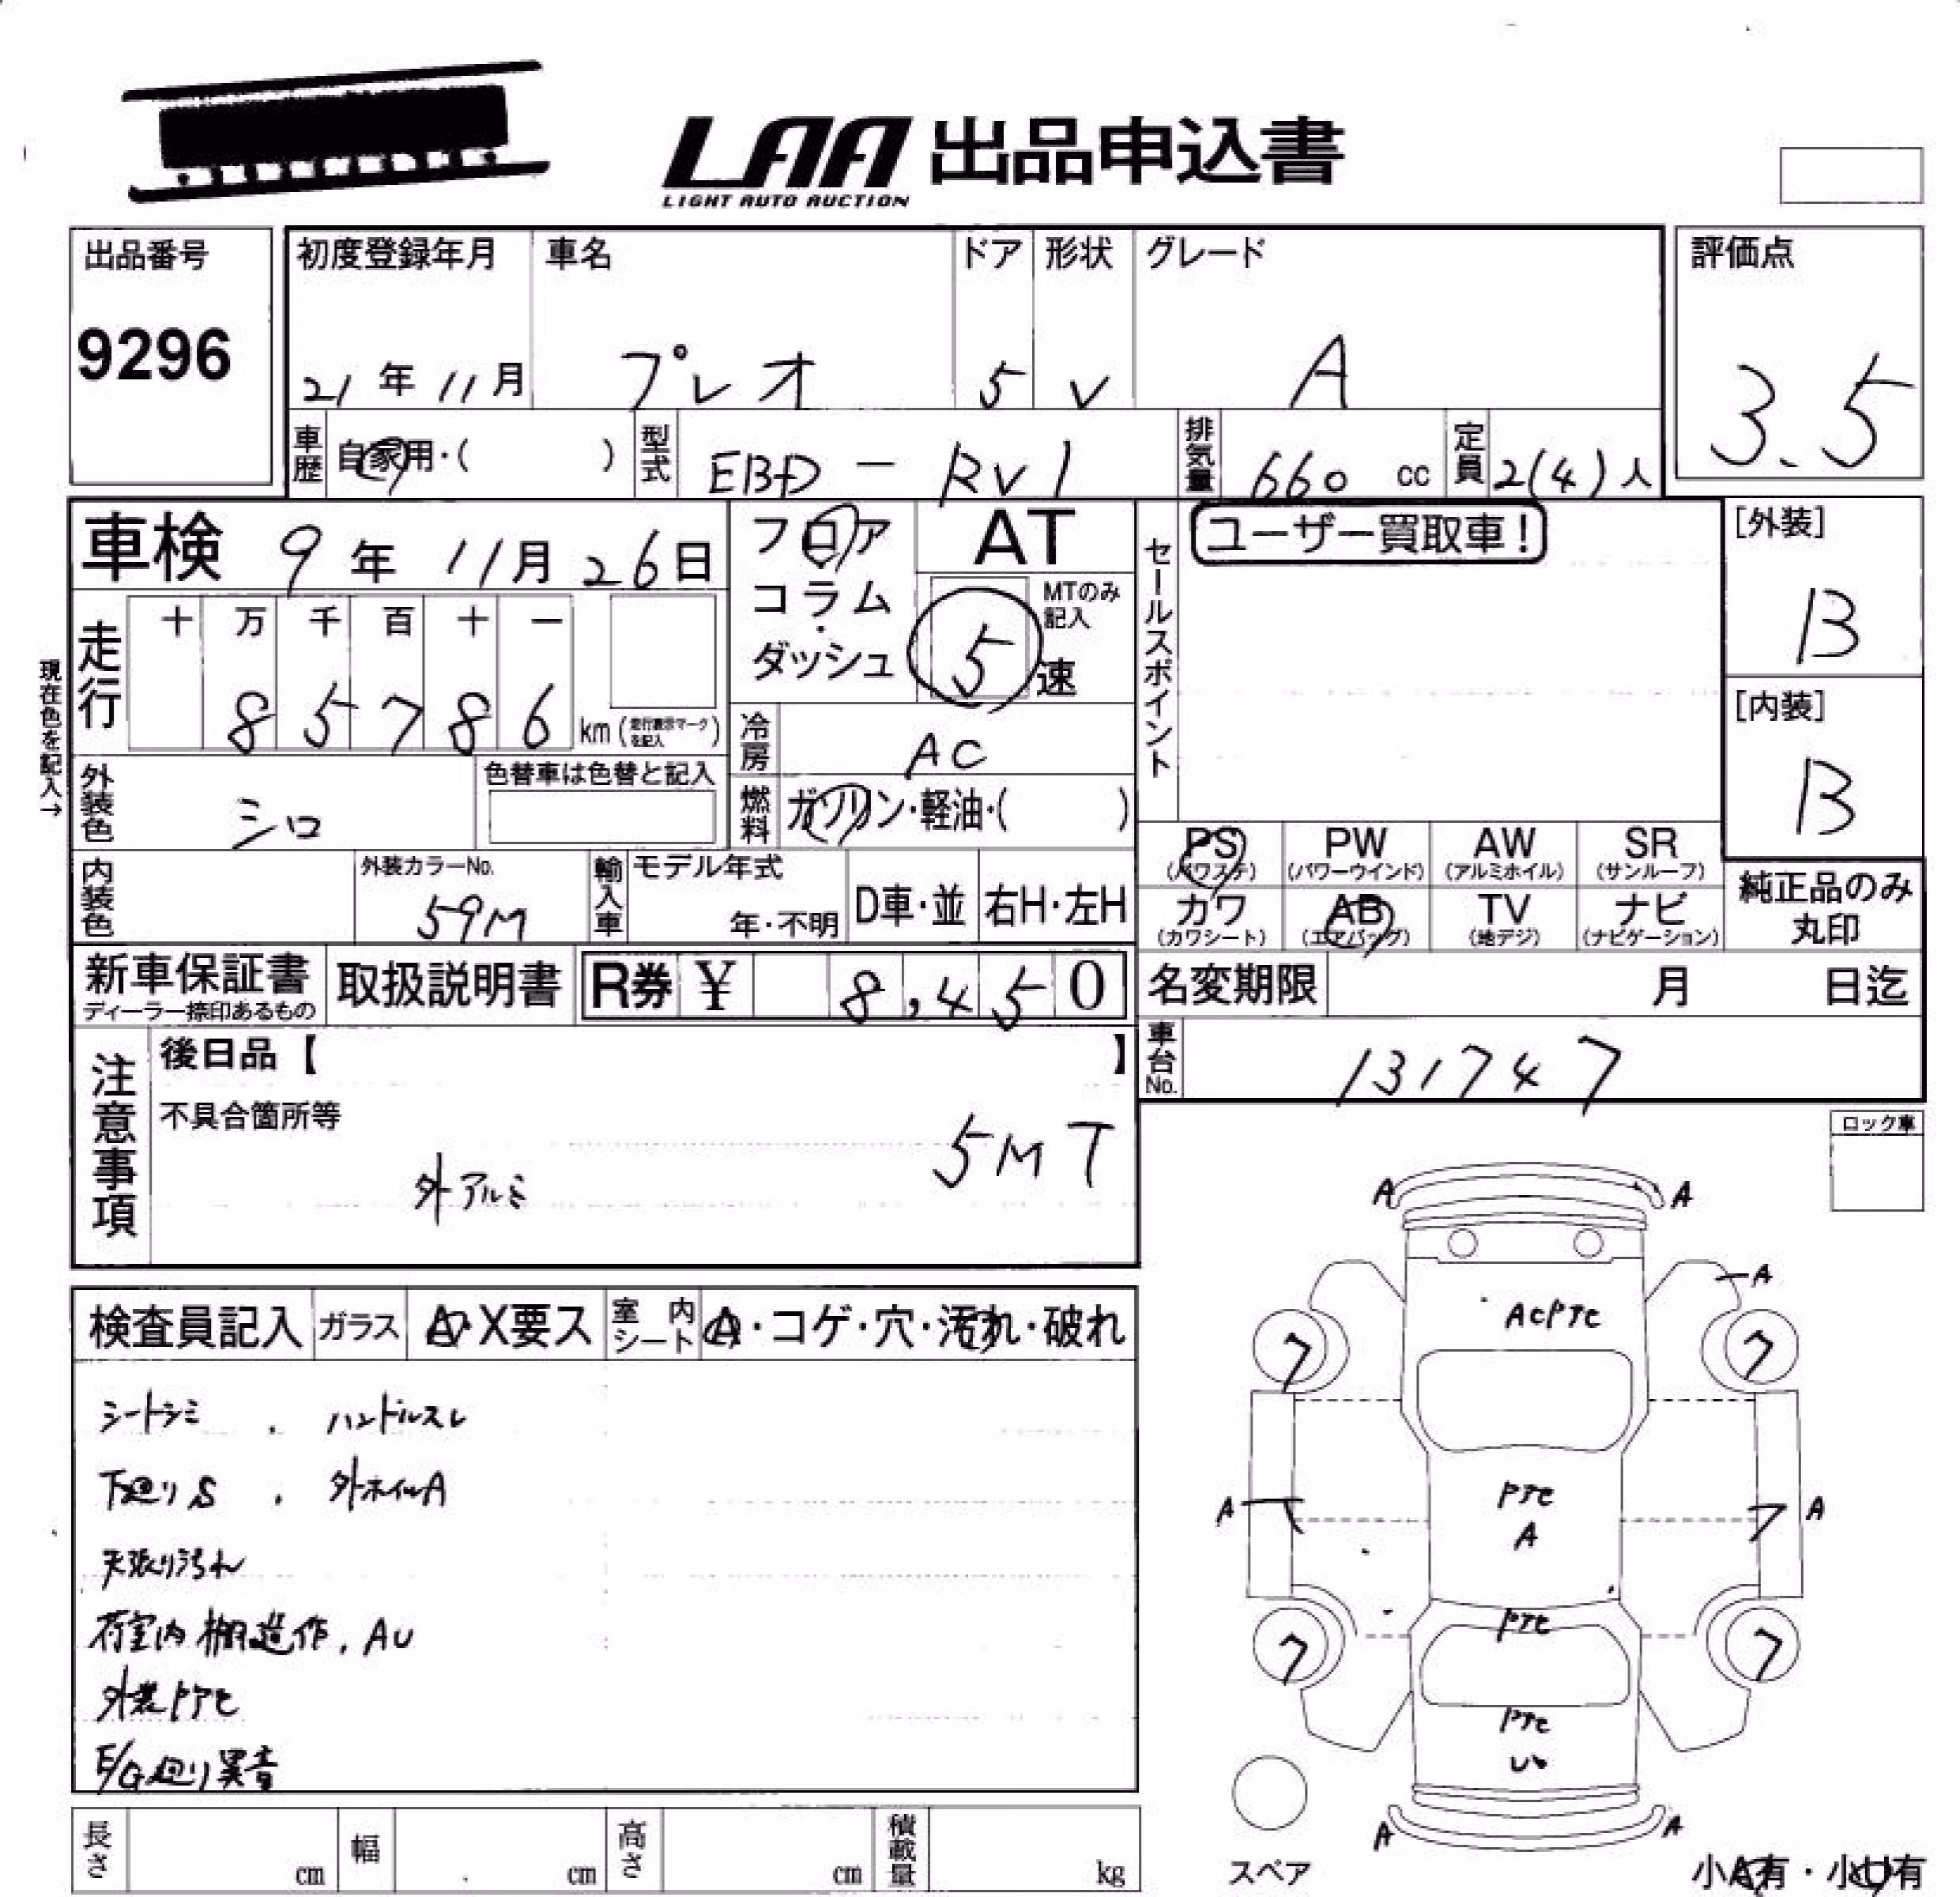 LAA 出品申込書
LIGHT AUTO AUCTION
出品番号
9296
初度登録年月
21 年 11 月
車名
プレオ
ドア
5
形状
V
グレード
A
評価点
3.5
車歴 自家用・( )
型式 EBD - RV1
排気量 660 cc
定員 2(4)人
車検 9 年 11 月 26 日
フロア
コラム・
ダッシュ
AT
MTのみ記入
5 速
セールスポイント
ユーザー買取車!
[外装]
B
[内装]
B
現在色を記入→
走行 十 万 千 百 十 一
8 5 7 8 6 km (走行表示マークを記入)
冷房 AC
燃料 ガソリン・軽油・( )
外装色 シロ
色替車は色替と記入
内装色
外装カラーNo.
59M
輸入車 モデル年式
年・不明
D車・並
右H・左H
PS (パワステ)
PW (パワーウインド)
AW (アルミホイル)
SR (サンルーフ)
カワ (カワシート)
AB (エアバッグ)
TV (地デジ)
ナビ (ナビゲーション)
純正品のみ丸印
新車保証書
ディーラー捺印あるもの
取扱説明書
R券 ¥ 8,450
名変期限 月 日迄
車台No. 131747
注意事項
後日品【 】
不具合箇所等
5MT
外アルミ
ロック車
検査員記入 ガラス A・X要ス 室内シート A・コゲ・穴・汚れ・破れ
シートシミ . ハンドルスレ
下廻りS . 外ホイルA
天張り汚れ
荷室内棚造作. AU
外装PTC
E/G廻り異音
A A
A
ACPTC
7 7
PTC
A
A A
7
PTC
7 7
PTC
A A
スペア
小A有・小U有
長さ cm 幅 cm 高さ cm 積載量 kg